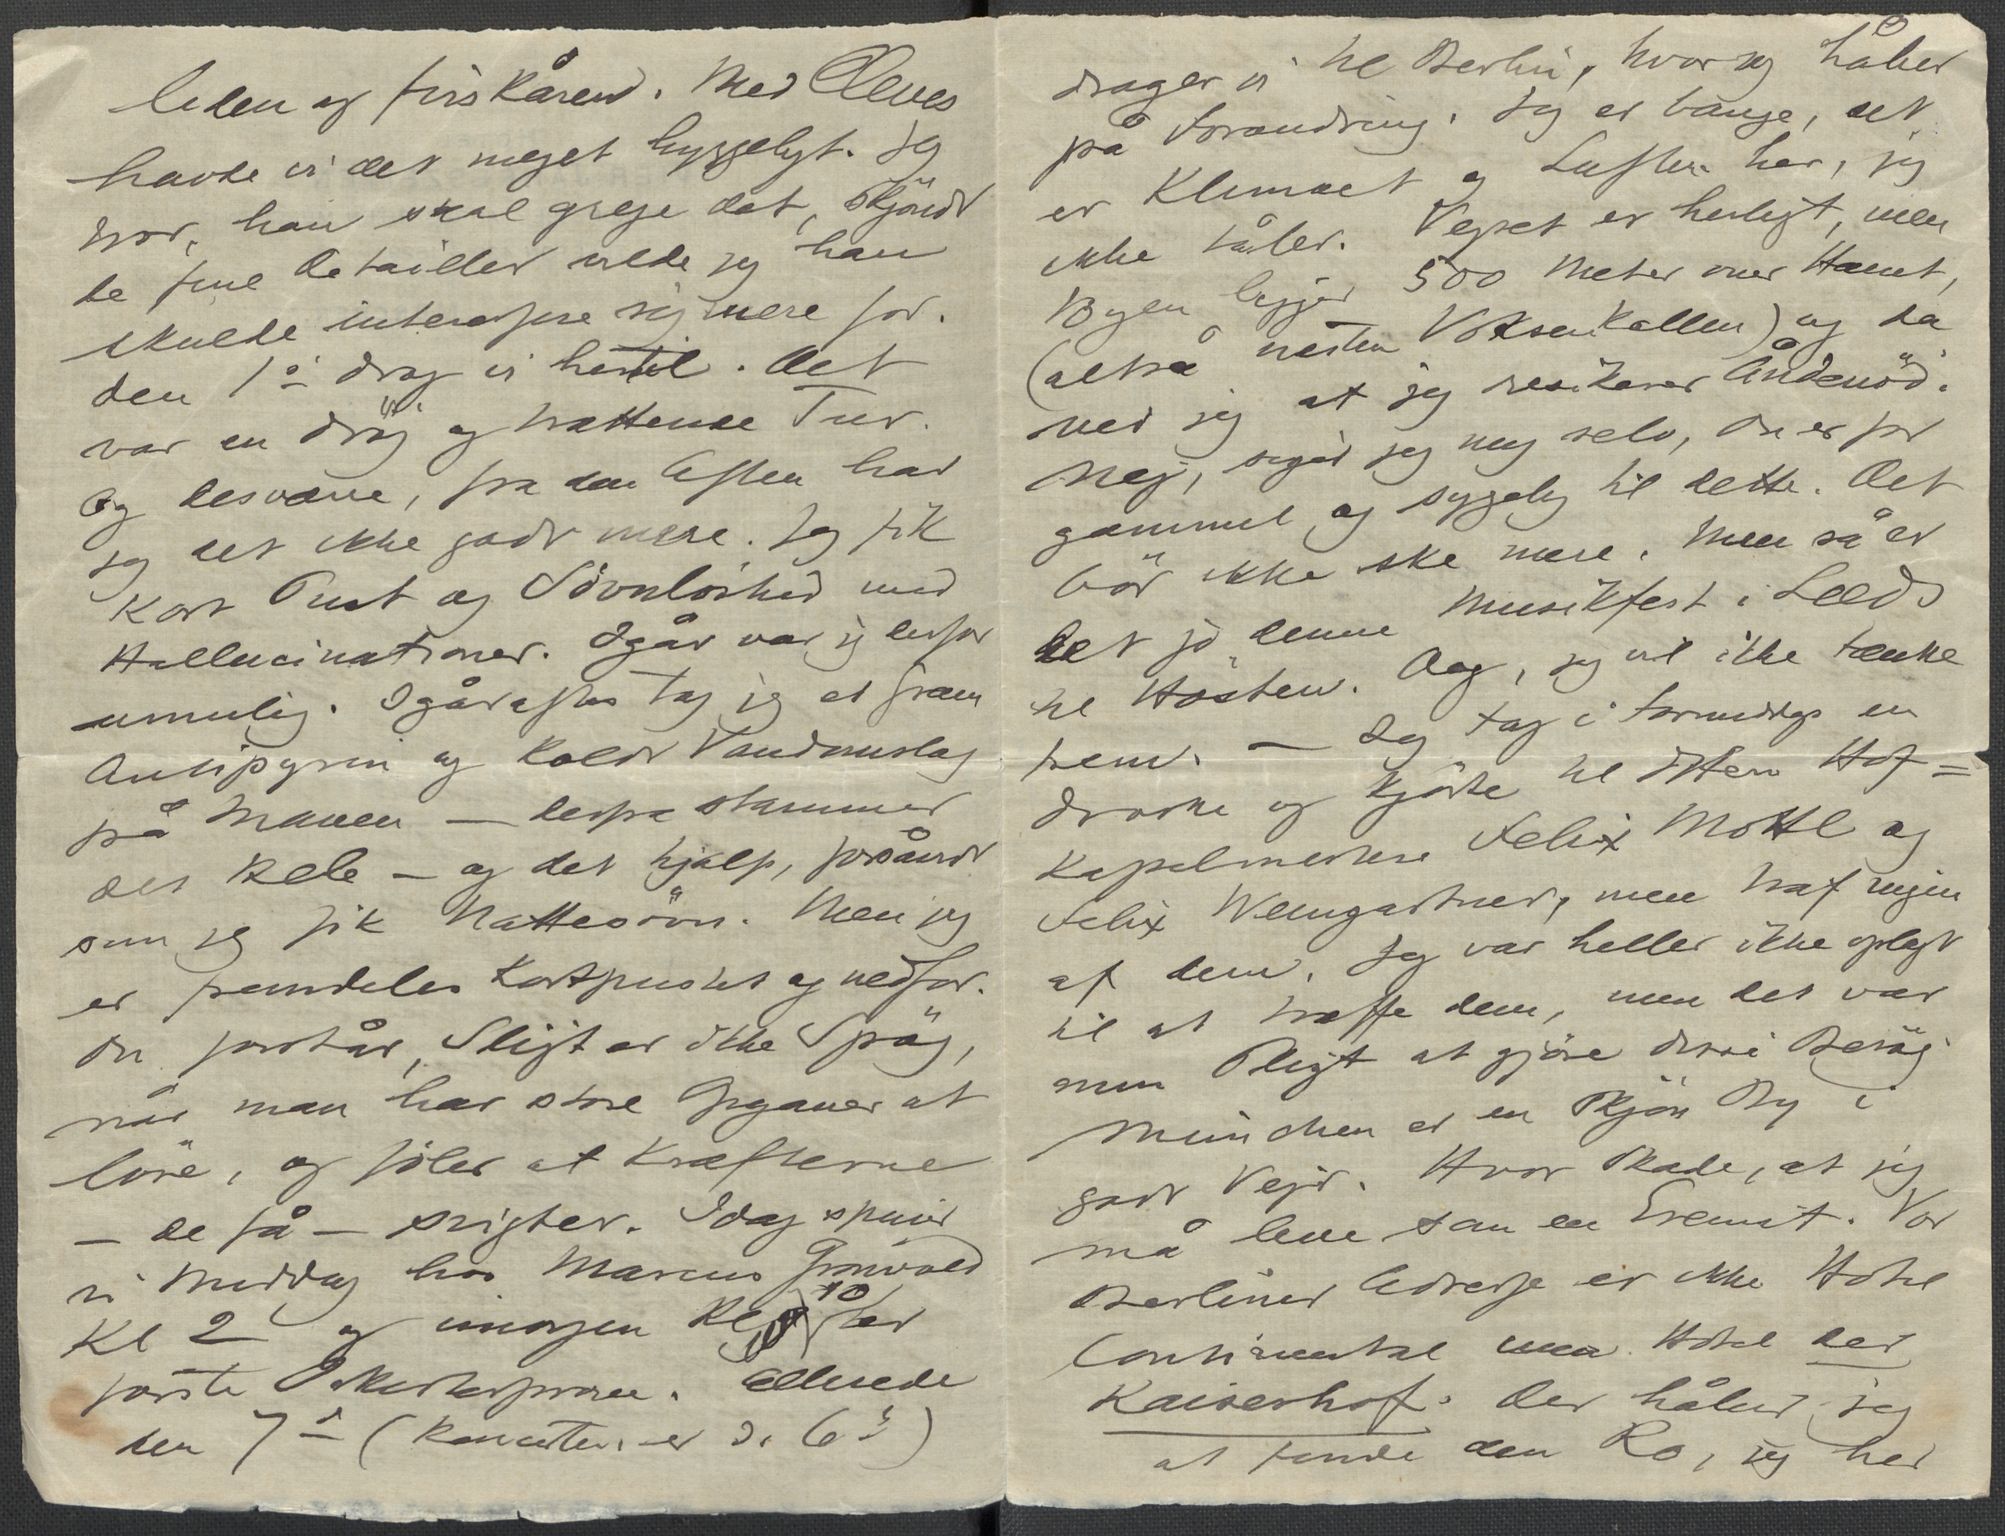 leden og firskåren. Med Cleves
havde vi det meget hyggeligt. Jeg
tror, han skal greje det, skjöndt
de fine Detailler vilde jeg han
skulde interessere sig mere for.
den 1ste drog vi hertil. Det
var en dröj og trættende Tur.
Og desværre, fra den Aften har
jeg det ikke godt mere. Jeg fik
kort Pust og Sövnlöshed med
Hallucinationer. Igår var jeg derfor
umulig. Igåraftes tog jeg et Gram
Antipyrin og koldt Vandomslag
på Maven – derfra stammer
det Hele – og det hjalp, forsåvidt
som jeg fik Nattesövn. Men jeg
er fremdeles kortpustet og nedfor.
Du forstår, Sligt er ikke Spög,
når man har store Opgaver at
löse, og föler at Kræfterne
– de få – svigter. Idag spiser
vi Middag hos Marcus Grönvold
Kl 2 og imorgen Kl 10 har
förste Orkesterpröve. Allerede
den 7de (Koncerten er d. 6te)
drager vi til Berlin, hvor jeg håber
på Forandring. Jeg er bange, det
er Klimaet og Luften her, jeg
ikke tåler. Vejret er herligt, men
Byen ligger 500 Meter over Havet,
(altså næsten Voksenkollen) og da
ved jeg at jeg resikerer Åndenöd.
Nej, siger jeg mig selv, du er for
gammel og sygelig til dette. Det
bör ikke ske mere. Men så er
det jo denne Musikfest i Leeds
til Hösten. Aag, jeg vil ikke tænke
frem. – Jeg tog i Formiddags en
Droske og kjörte til d'Herr Hof=
kapelmestere Felix Mottl og
Felix Weingartner, men traf ingen
af dem. Jeg var heller ikke oplagt
til at træffe dem, men det var
min Pligt at gjöre disse Besög.
München er en skjön By i
godt Vejr. Hvor Skade, at jeg
må leve som en Eremit. Vor
Berliner Adresse er ikke Hotel
Continental men Hotel der
Kaiserhof. Der håber jeg
at finde den Ro, jeg her